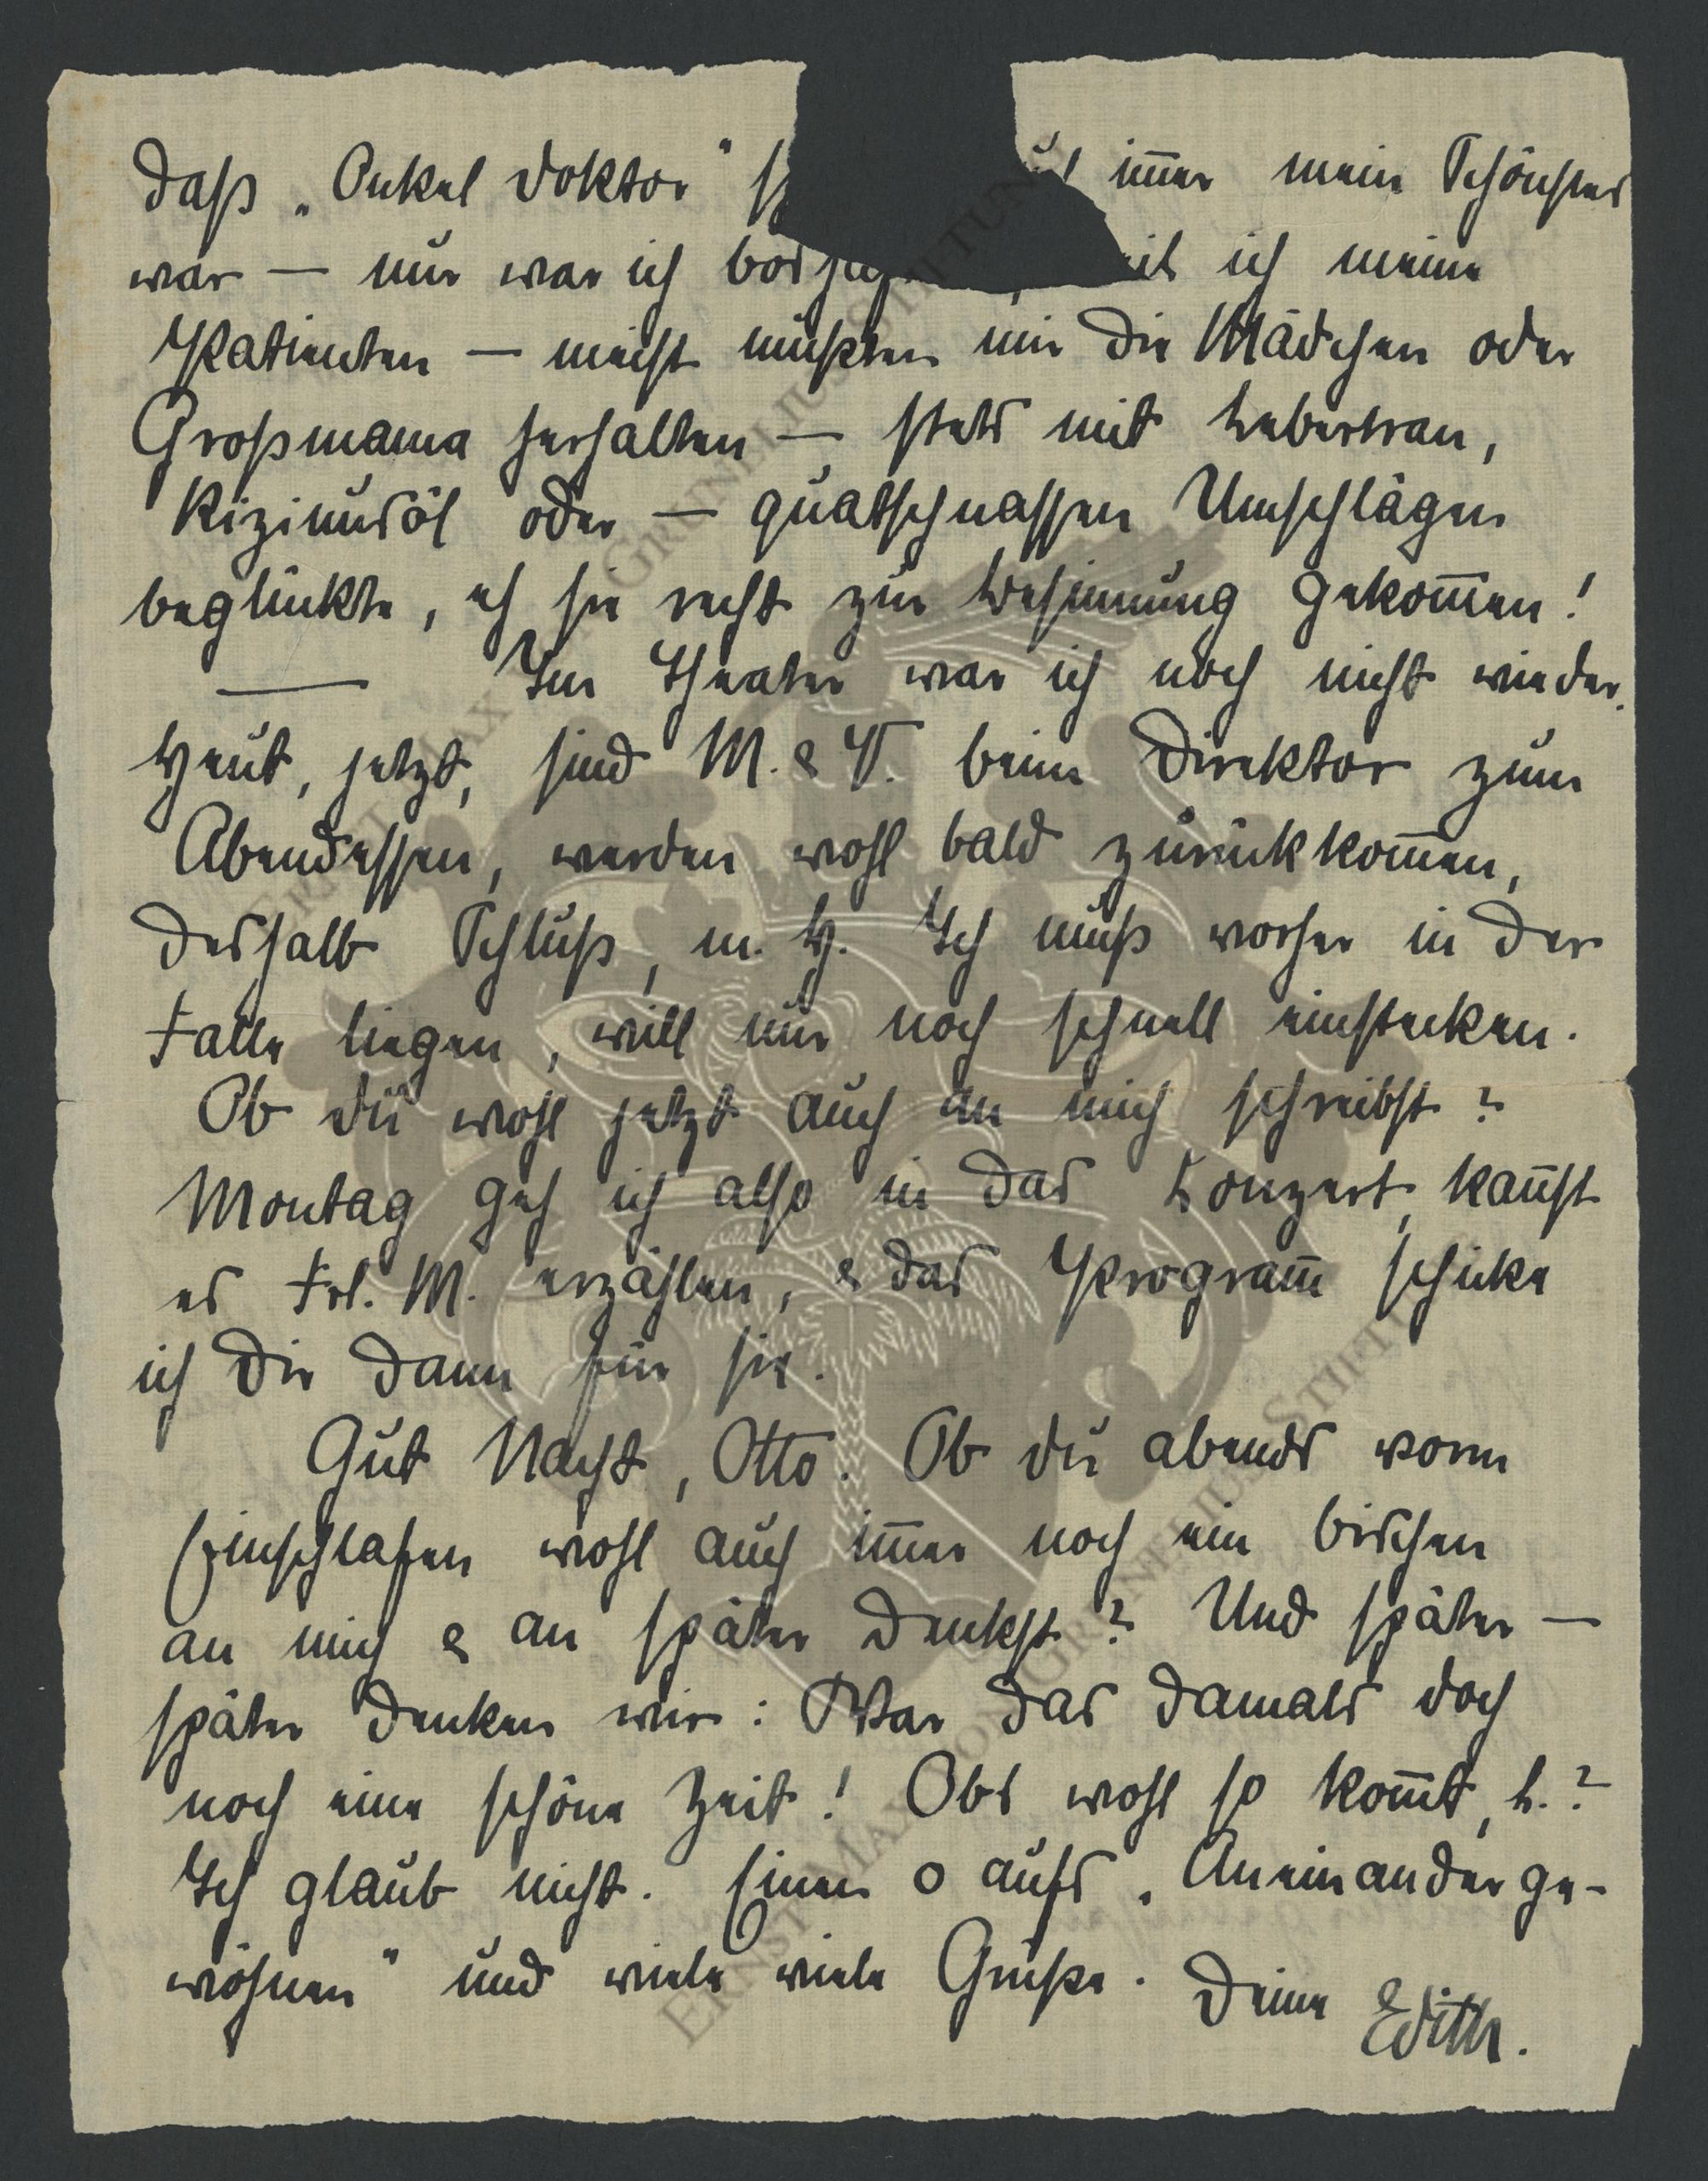 daß „Onkel Doktor" im̅er mein Schönstes
war — nur war ich ich meine
Patienten — meist mußten mir die Mädchen oder
Großmama herhalten — stets mit Lebertran,
Rizinusöl oder — quatschnassen Umschlägen
beglückte, eh sie recht zur Besinnung gekom̅en!
— Im Theater war ich noch nicht wieder.
Heut, jetzt, sind M. & V. beim Direktor zum
Abendessen, werden wohl bald zurückkom̅en,
deshalb Schluß, m. H. Ich muß vorher in der
Falle liegen, will nur noch schnell einstecken.
Ob du wohl jetzt auch an mich schreibst?
Montag geh ich also in das Konzert, kan̅st
es Frl. M. erzählen, & das Program̅ schicke
ich Dir dann für sie.
Gut Nacht, Otto. Ob du abends vorm
Einschlafen wohl auch im̅er noch ein bischen
an mich & an später denkst? Und später —
später denken wir: War das damals doch
noch eine schöne Zeit! Obs wohl so kom̅t, L.?
Ich glaub nicht. Einen o aufs „Aneinanderge-
wöhnen" und viele viele Grüße. Deine Edith.